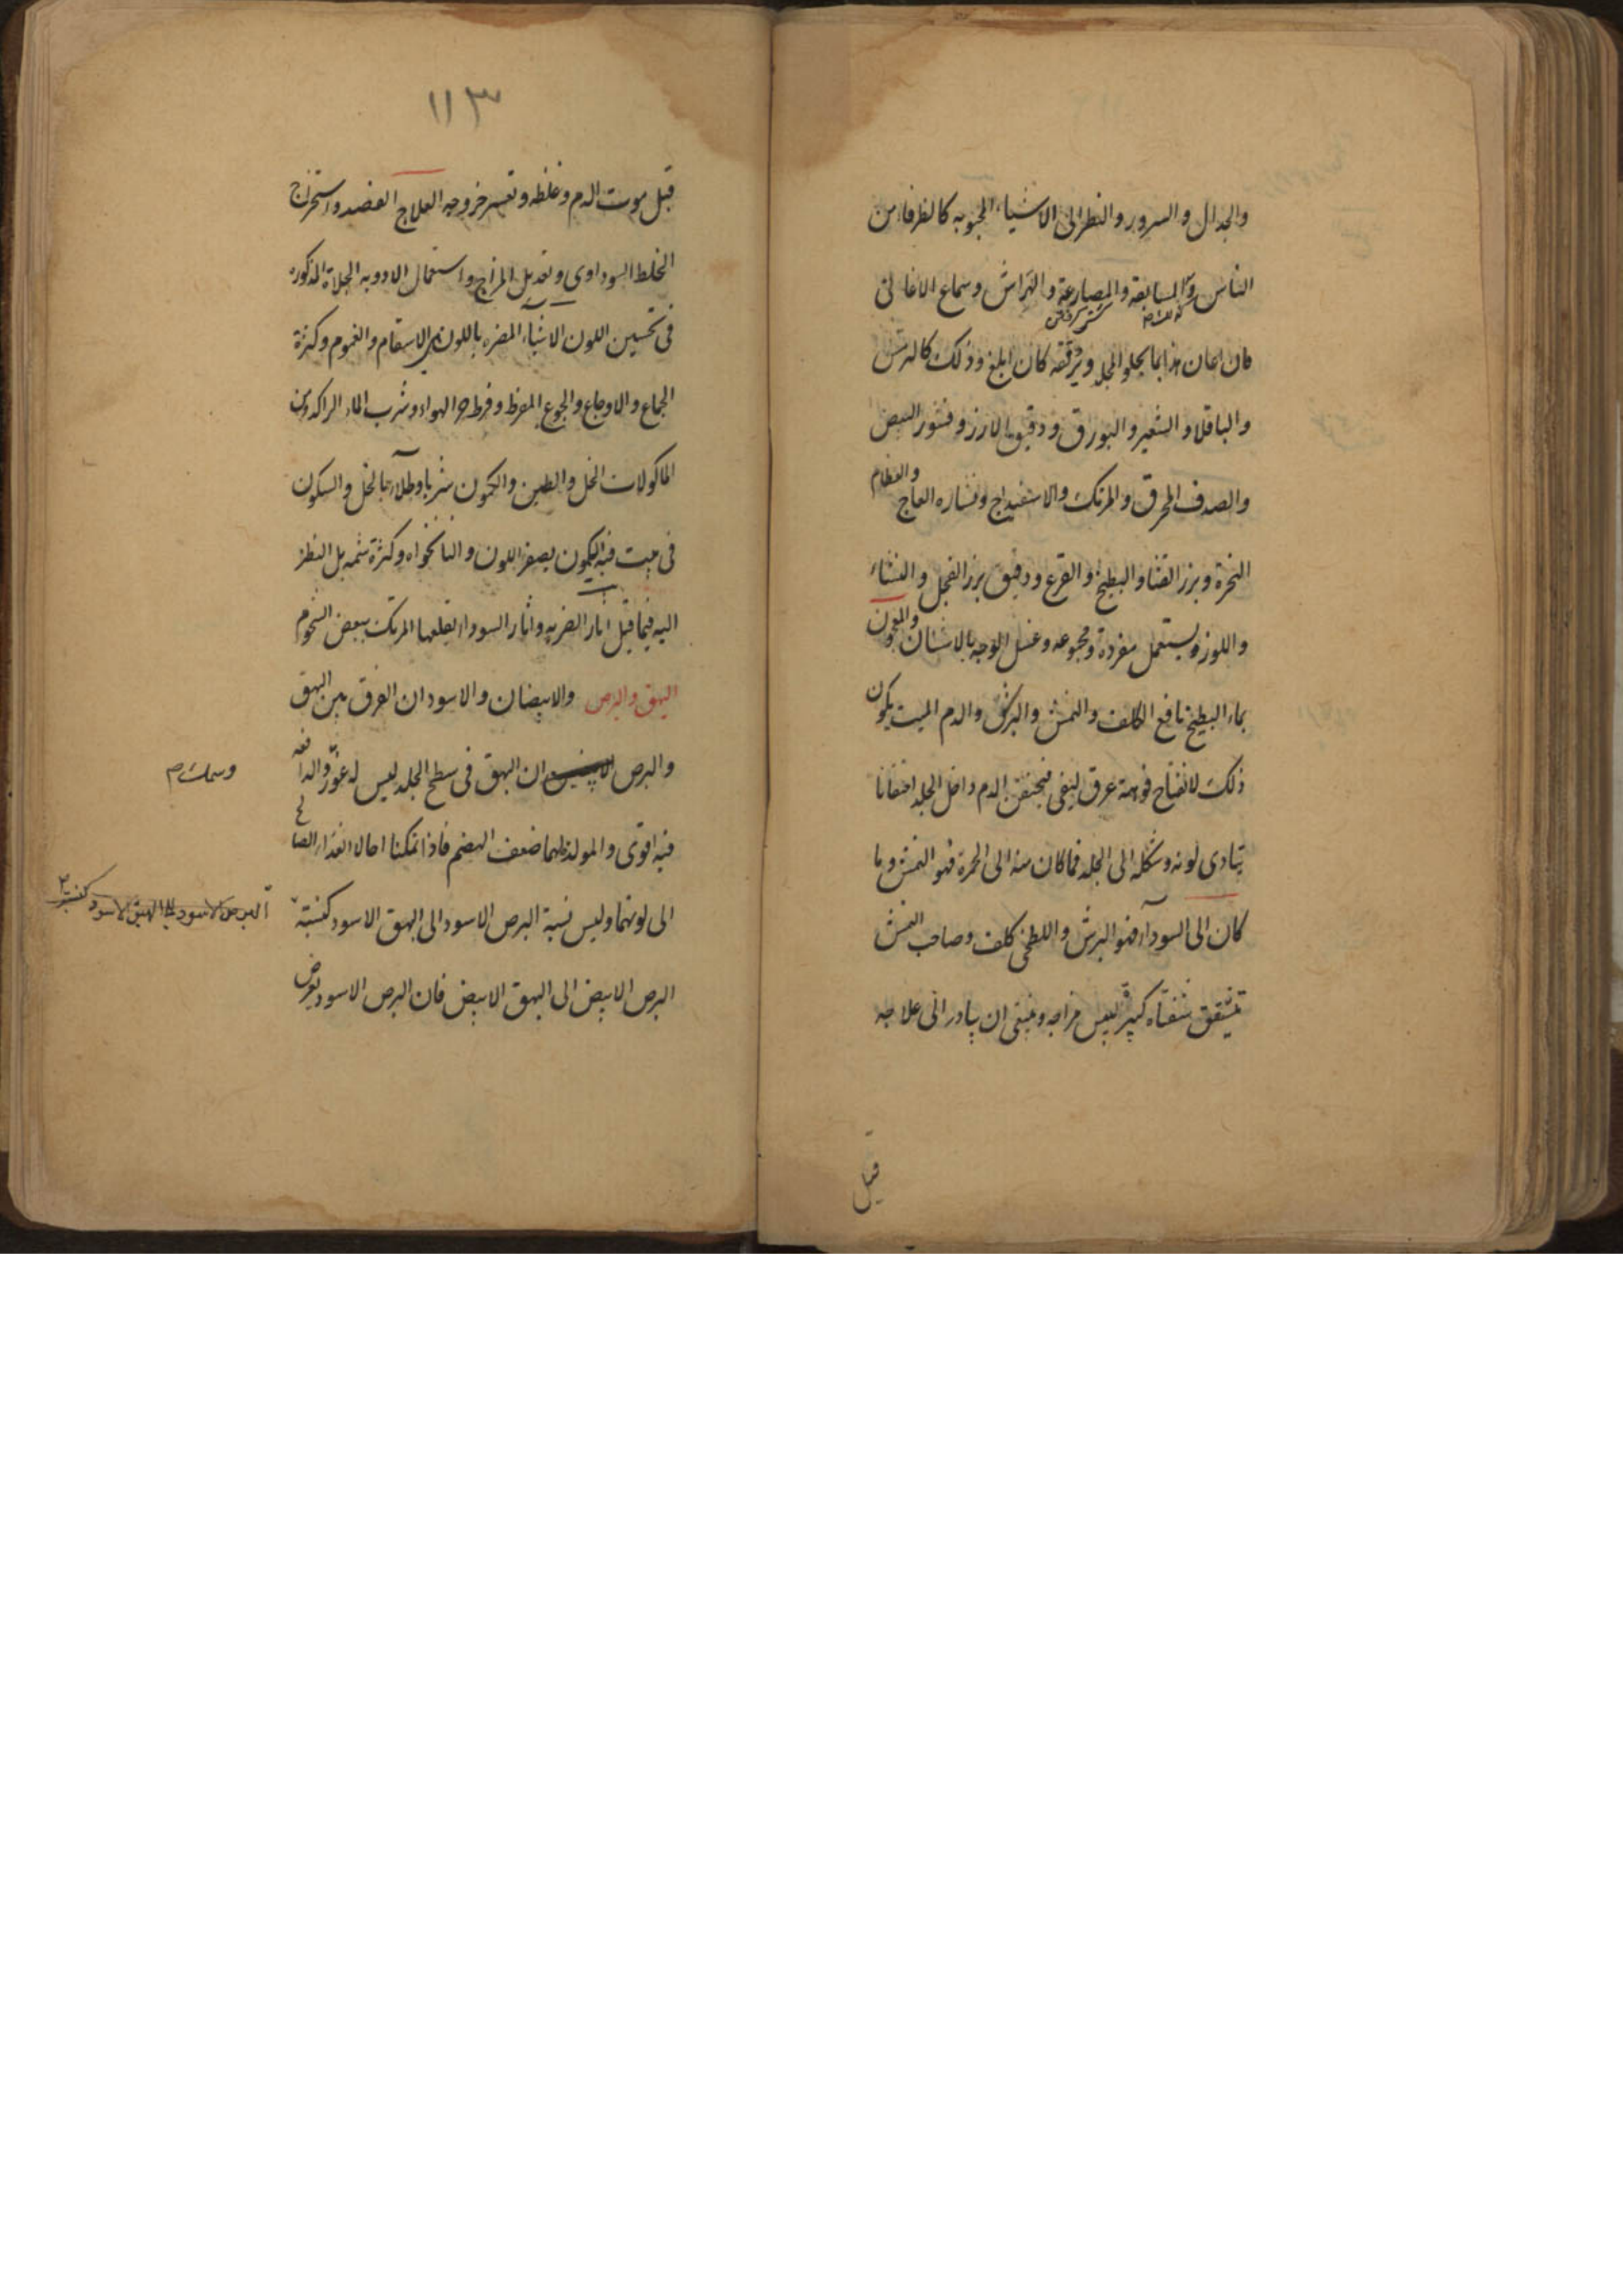 والجدال والسرور والنظر الى الاشياء المحبوبه كالظرفاء من
الناس والمسابقة والمصارعة والهراش وسماع الاغانى
فان اعان هذا بما يجلو الجلد ويرققه كان ابلغ وذلك كالترمس
والباقلا والشعير والبورق ودقيق الارز وقشور البيض
والصدف المحرق والمرتك والاسفيداج ونشاره العاج والعظام
النخرة وبزر القثا والبطيخ والقرع ودقيق بزر الفجل والنشاء
واللوز ويستعمل مفردة ومجموعه وغسل الوجه بالاشنان
بماء البطيخ نافع الكلف والنمش والبرش والدم الميت يكون
ذلك لانفتاح فوهة عرق ليفى فيحتقن الدم داخل الجلد احتقانا
يتادى لونه وشكله الى الجلد فما كان منه الى الحمرة فهو النمش وما
كان الى السودآء فهو البرش واللطخى كلف وصاحب النمش
تتشقق شفتاه كثير ليبس مزاجه وينبغى ان يبادر الى علاجه
قبل
١١٣
قبل موت الدم وغلظه وتعسر خروجه العلاج الفصد واستخراج
الخلط السوداوى وتعديل المزاج واستعمال الادويه الجلاة المذكوره
فى تحسين اللون الاشياء المضره باللون هى الاسقام والغموم وكثرة
الجماع والاوجاع والجوع المفرط وفرط حر الهواء وشرب الماء الراكد ومن
الماكولات الخل والطين والكمون شربا وطلاء بالخل والسكون
فى بيت فيه الكمون يصفر اللون والنانخواه وكثرة شمه بل النظر
اليه فيما قيل اثار الضربه واثار السودا يقلعها المرتك ببعض الشحوم
البهق والبرص والابيضان والاسودان الفرق بين البهق
والبرص ان البهق فى سطح الجلد ليس له غور والدافعه
فيه اقوى والمولد لهما ضعف الهضم فاذا تمكنا احالا الغذاء الصالح
الى لونهما وليس نسبة البرص الاسود الى البهق الاسود كنسبة
البرص الابيض الى البهق الابيض فان البرص الاسود يعرض
البرص الاسود الى البهق الاسود كنسبة